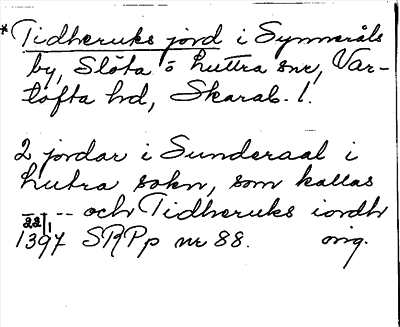 *Tidheruks jord i Synneråls
by, Slöta o Luttra snr, Var-
tofta hd, Skarab. l.
2 jordar i Sunderaal i
Lutra sokn, som kallas
--- och Tidheruks iordh
22/1 1397 SRPp nr 88. orig.